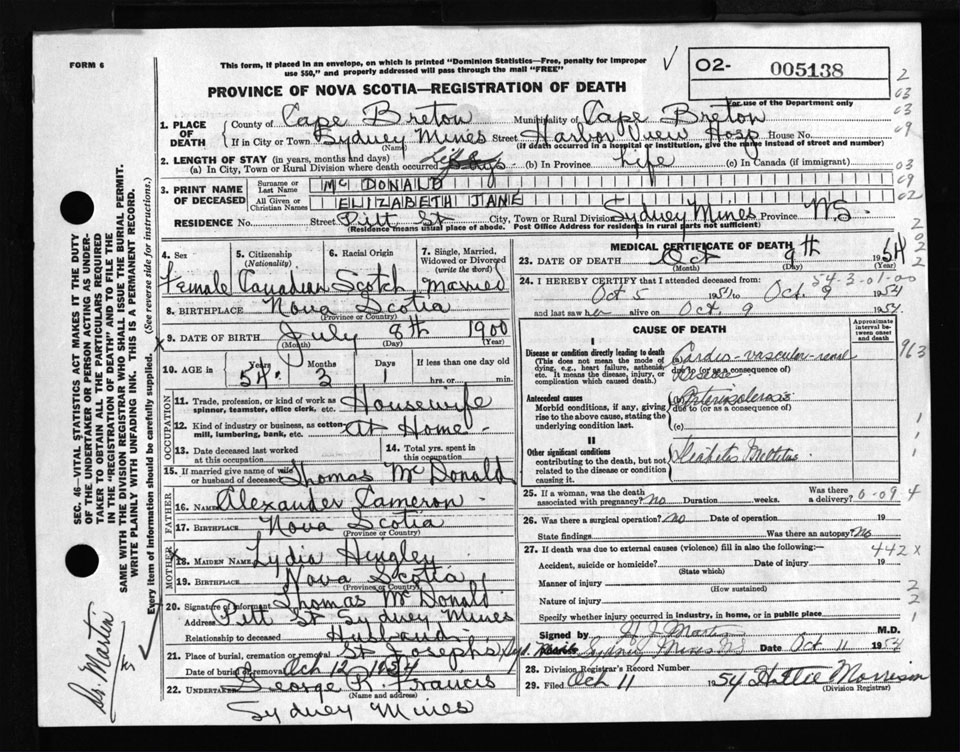 FORM 6
This form, if placed in an envelope, on which is printed "Dominion Statistics—Free, penalty for improper
use $50," and properly addressed will pass through the mail "FREE"
O2- 005138
For use of the Department only
PROVINCE OF NOVA SCOTIA—REGISTRATION OF DEATH
1. PLACE OF DEATH
County of Cape Breton Municipality of Cape Breton
If in City or Town Sydney Mines Street Harbor View Hosp House No.
(Name) (If death occurred in a hospital or institution, give the name instead of street and number)
2. LENGTH OF STAY (in years, months and days)
(a) In City, Town or Rural Division where death occurred (b) In Province Life (c) In Canada (if immigrant)
3. PRINT NAME OF DECEASED
Surname or Last Name McDONALD
All Given or Christian Names ELIZABETH JANE
RESIDENCE No. Street Pitt St City, Town or Rural Division Sydney Mines Province N.S.
(Residence means usual place of abode. Post Office Address for residents in rural parts not sufficient)
4. Sex 5. Citizenship (Nationality) 6. Racial Origin 7. Single, Married, Widowed or Divorced (write the word)
Female Canadian Scotch Married
8. BIRTHPLACE Nova Scotia
(Province or Country)
9. DATE OF BIRTH July 8th 1900
(Month) (Day) (Year)
10. AGE in Years Months Days If less than one day
54 3 1 hrs. or min.
OCCUPATION
11. Trade, profession, or kind of work as
spinner, teamster, office clerk, etc. Housewife
12. Kind of industry or business, as cotton
mill, lumbering, bank, etc. At Home
13. Date deceased last worked
at this occupation
14. Total yrs. spent in
this occupation
15. If married give name of wife
or husband of deceased Thomas McDonald
FATHER
16. NAME Alexander Cameron
17. BIRTHPLACE Nova Scotia
(Province or Country)
MOTHER
18. MAIDEN NAME Lydia Hugley
19. BIRTHPLACE Nova Scotia
(Province or Country)
20. Signature of Informant Thomas McDonald
Address Pitt St Sydney Mines
Relationship to deceased Husband
21. Place of burial, cremation or removal St Josephs, Syd.
Date of burial or removal Oct 12 1954
22. UNDERTAKER George R. Francis
(Name and address)
Sydney Mines
MEDICAL CERTIFICATE OF DEATH
23. DATE OF DEATH Oct 9th 1954
(Month) (Day) (Year)
54-3-01-00
24. I HEREBY CERTIFY that I attended deceased from:
Oct 5 1954 to Oct. 9 1954
and last saw her alive on Oct. 9 1954
CAUSE OF DEATH
Approximate interval between onset and death
I
Disease or condition directly leading to death
(This does not mean the mode of
dying, e.g., heart failure, asthenia,
etc. It means the disease, injury, or
complication which caused death.)
(a) Cardio-vascular-renal
due to (or as a consequence of)
disease
Antecedent causes
Morbid conditions, if any, giving
rise to the above cause, stating the
underlying condition last.
(b) Arteriosclerosis
due to (or as a consequence of)
(c)
II
Other significant conditions
contributing to the death, but not
related to the disease or condition
causing it.
Diabetes Mellitus
25. If a woman, was the death
associated with pregnancy? No Duration weeks. Was there a delivery?
26. Was there a surgical operation? No Date of operation 19
State findings Was there an autopsy? No
27. If death was due to external causes (violence) fill in also the following:— 442 x
Accident, suicide or homicide? Date of injury 19
(State which)
Manner of injury
(How sustained)
Nature of injury
Specify whether injury occurred in industry, in home, or in public place
Signed by M.D.
Sydney Mines NS Date Oct 11 1954
28. Division Registrar's Record Number
29. Filed Oct 11 1954 Hattie Morrison
(Division Registrar)
SEC. 46—VITAL STATISTICS ACT MAKES IT THE DUTY
OF THE UNDERTAKER OR PERSON ACTING AS UNDER-
TAKER TO OBTAIN ALL THE PARTICULARS REQUIRED
IN THE "REGISTRATION OF DEATH" AND TO FILE THE
SAME WITH THE DIVISION REGISTRAR WHO SHALL ISSUE THE BURIAL PERMIT.
WRITE PLAINLY WITH UNFADING INK. THIS IS A PERMANENT RECORD.
Every item of Information should be carefully supplied. (See reverse side for instructions.)
Dr. Marten